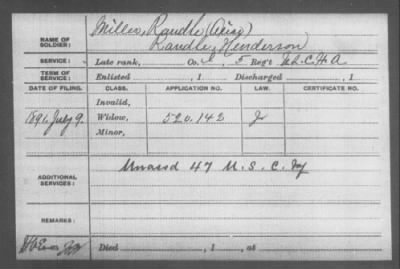 NAME OF SOLDIER: Miller, Randle (Alias)
Randle, Henderson)
SERVICE: Late rank, Co. 5 Reg't U.S.C.H.A
TERM OF SERVICE: Enlisted , 1 Discharged , 1
DATE OF FILING. CLASS. APPLICATION NO. LAW. CERTIFICATE NO.
Invalid,
1891, July 9. Widow, 520.142
Minor,
ADDITIONAL SERVICES: Unassd 47 U.S.C. Inf
REMARKS:
Died , 1 , at